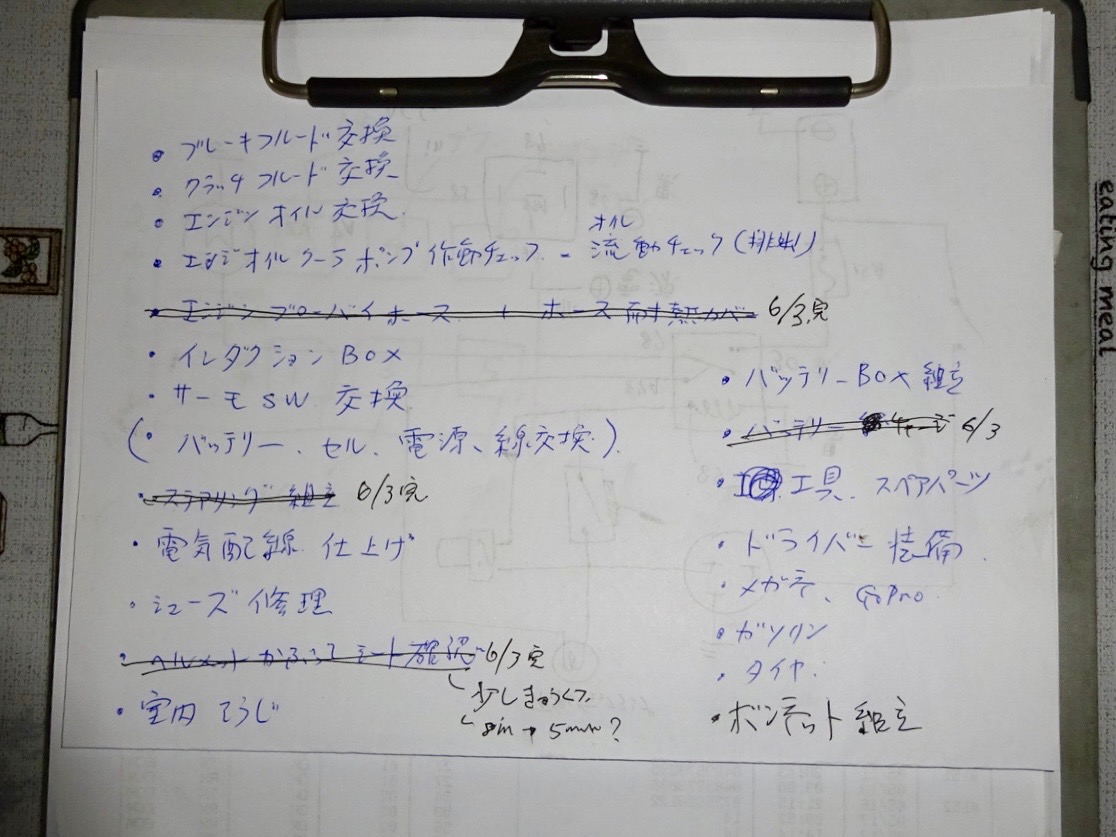 ・ブレーキフルード交換
・クラッチフルード交換
・エンジンオイル交換
・エンジオイルクーラポンプ作動チェック - オイル流動チェック(排出)
・エンジンブローバイホース + ホース耐熱カバー 6/3完
・インダクションBOX
・サーモSW 交換
(・バッテリー、セル、電源、線交換.)
・ステアリング組立 6/3完
・電気配線 仕上げ
・シューズ修理
・ヘルメットかぶってシート確認 6/3完
少しきゅうくつ
→ 5mm?
・室内そうじ
・バッテリーBOX組立
・バッテリーチャージ 6/3
・工具、スペアパーツ
・ドライバー装備
・メガネ、GoPro
・ガソリン
・タイヤ
・ボンネット組立
eating meal